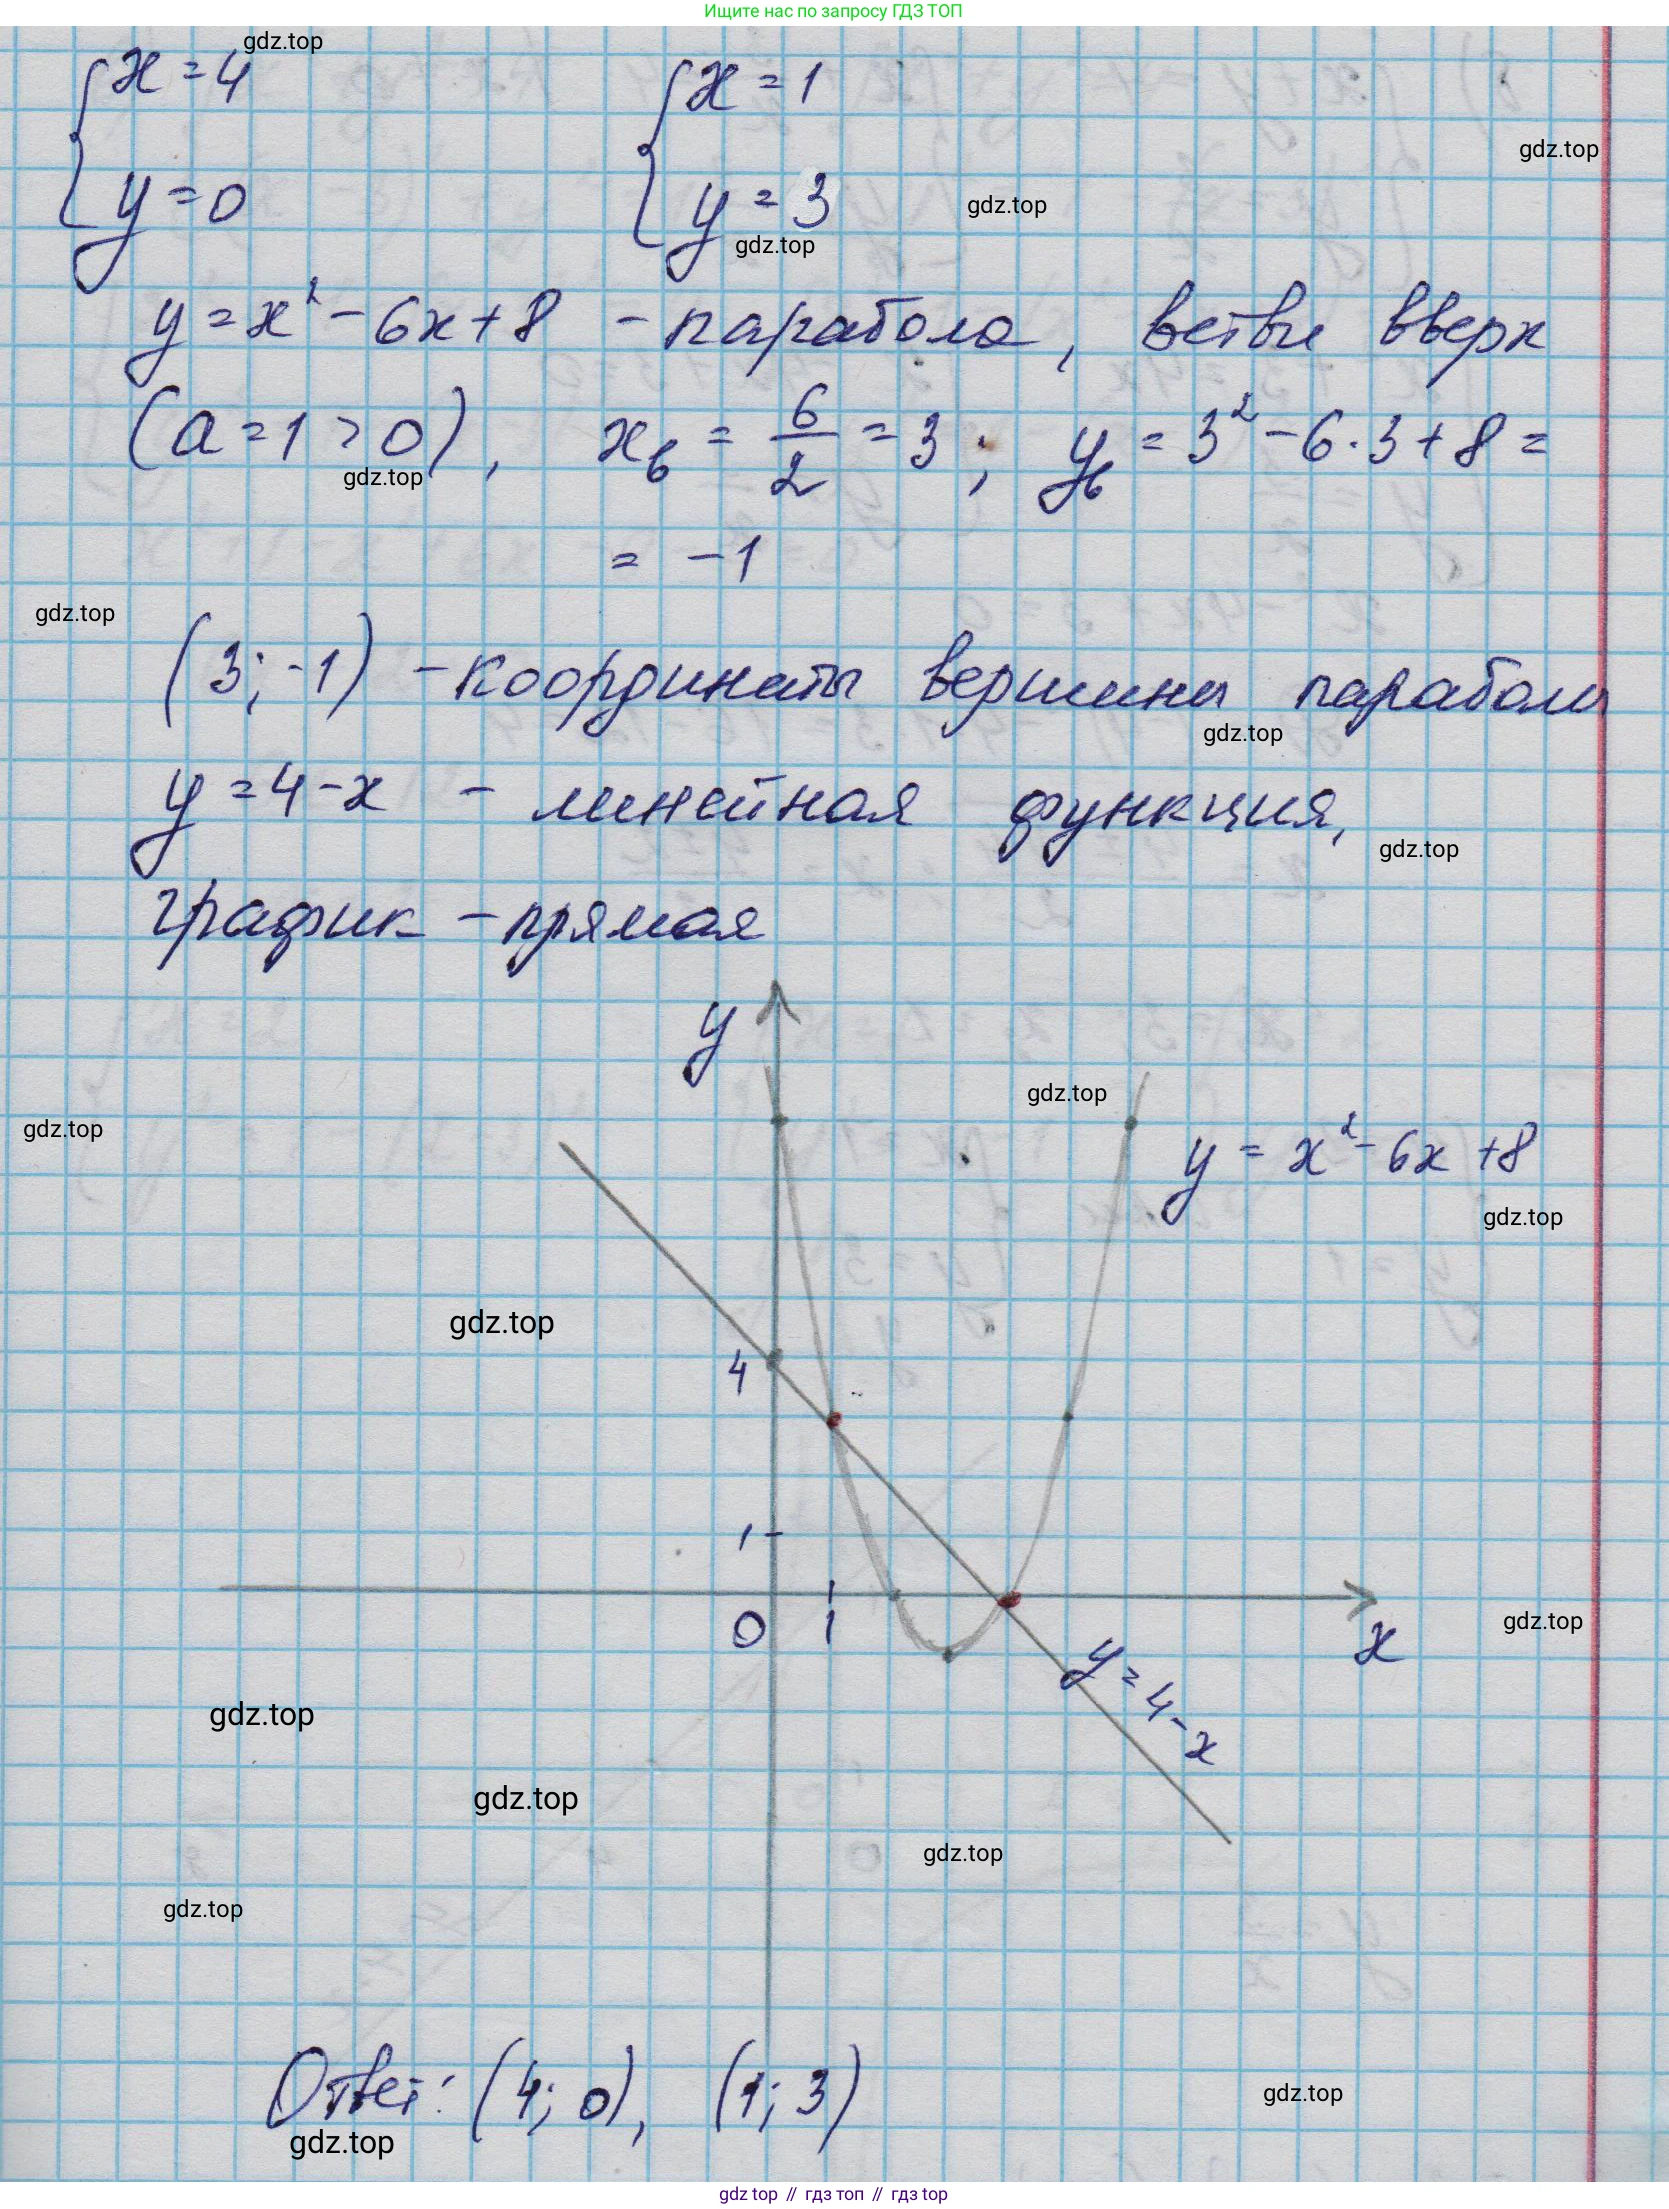 Ищите нас по запросу ГДЗ ТОП
gdz.top
{ x = 4
{ y = 0
{ x = 1
{ y = 3
gdz.top
gdz.top
gdz.top
y = x² - 6x + 8 - парабола, ветви вверх
(a = 1 > 0), x_в = 6/2 = 3; y_в = 3² - 6·3 + 8 =
gdz.top
= -1
gdz.top
(3; -1) - координаты вершины параболы
gdz.top
y = 4 - x - линейная функция,
gdz.top
график - прямая
y
gdz.top
gdz.top
y = x² - 6x + 8
gdz.top
gdz.top
4
1
0
1
x
gdz.top
y = 4 - x
gdz.top
gdz.top
gdz.top
gdz.top
Ответ: (4; 0), (1; 3)
gdz.top
gdz.top
gdz top // гдз топ // гдз top